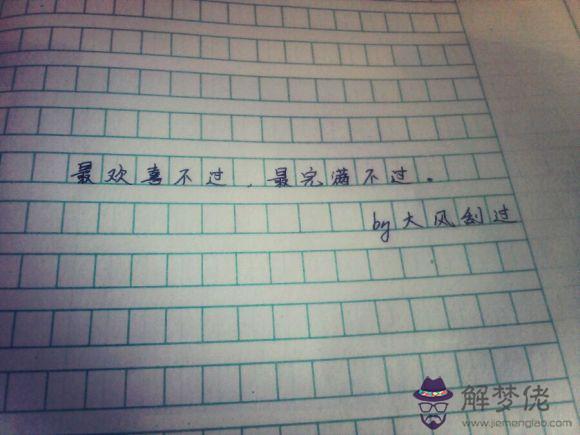 最欢喜不过，最完满不过。
by大风刮过
解梦佬
www.jiemenglao.com